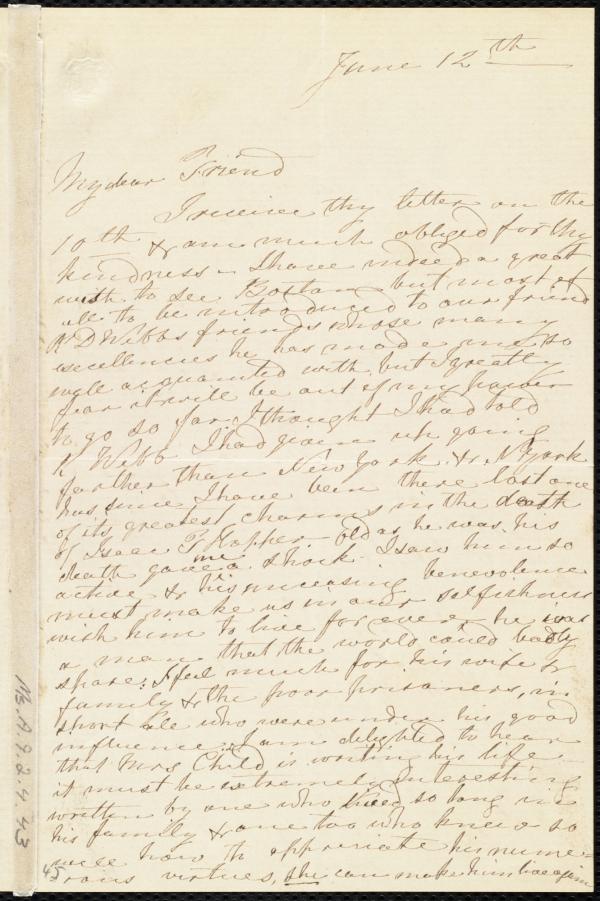 June 12th
My dear Friend
I receive thy letter on the
10th & am much obliged for thy
kindness - I have indeed a great
wish to see Boston but most of
all to be introduced to our friend
R D Webbs friends whose many
excellencies he has made me so
well acquainted with but I greatly
fear it will be out of my power
to go so far, I thought I had told
R Webb I had given up going
farther than New York. & N. York
has since I have been there lost one
of its greatest charms in the death
of Isaac T Hopper - old as he was his
death gave me a shock. I saw him so
active & his unceasing benevolence
must make us in our selfishness
wish him to live for ever. he was
a man that the world could badly
spare; I feel much for his wife &
family & the poor prisoners, in
short all who were under his good
influence; I am delighted to hear
that Mrs Child is writing his life
it must be extremely interesting
written by one who lived so long in
his family & one too who knew so
well how to appreciate his nume=
rous virtues, she can make him live again
45
Ms.A.9.2.4.43